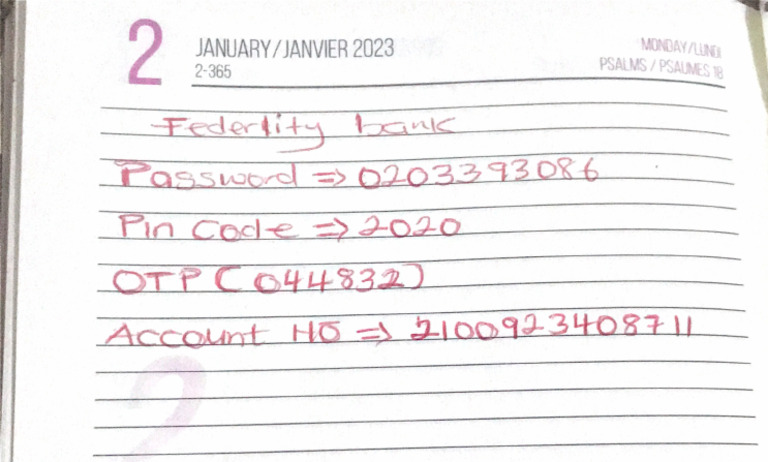 2
JANUARY/JANVIER 2023
2-365
MONDAY/LUNDI
PSALMS / PSAUMES 18
Federlity bank
Password => 0203393086
Pin Code => 2020
OTP (044832)
Account NO => 2100923408711
2